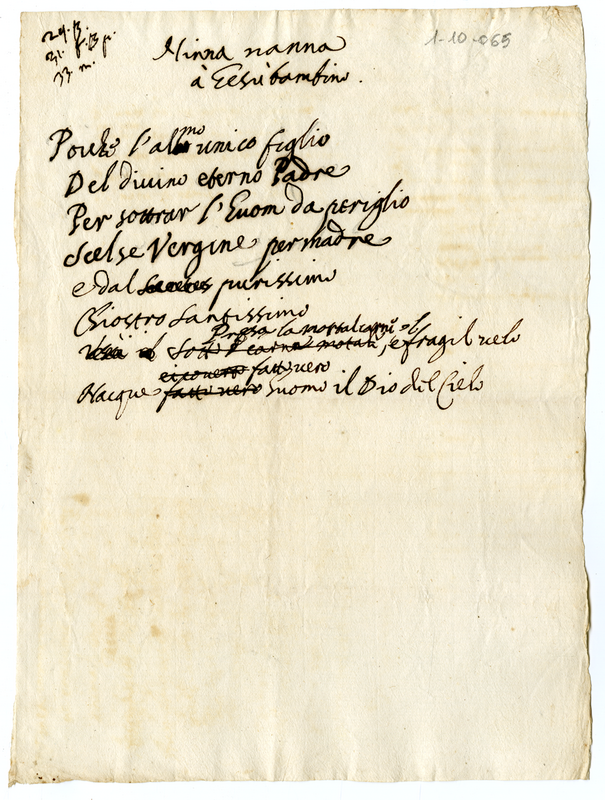 29. 13
31. f. 13 p.
33 m.
1-10-065
Ninna nanna
à Gesù bambino.
l'almo unico figlio
Del divino eterno Padre
Per sottrar l'Huom da periglio
Scelse Vergine per madre
e dal purissimo
Chiostro Santissimo
Presa la mortal
Sotto carne mortali, e fragil velo
fatto vero
Nacque fatto vero huomo il Dio del Cielo